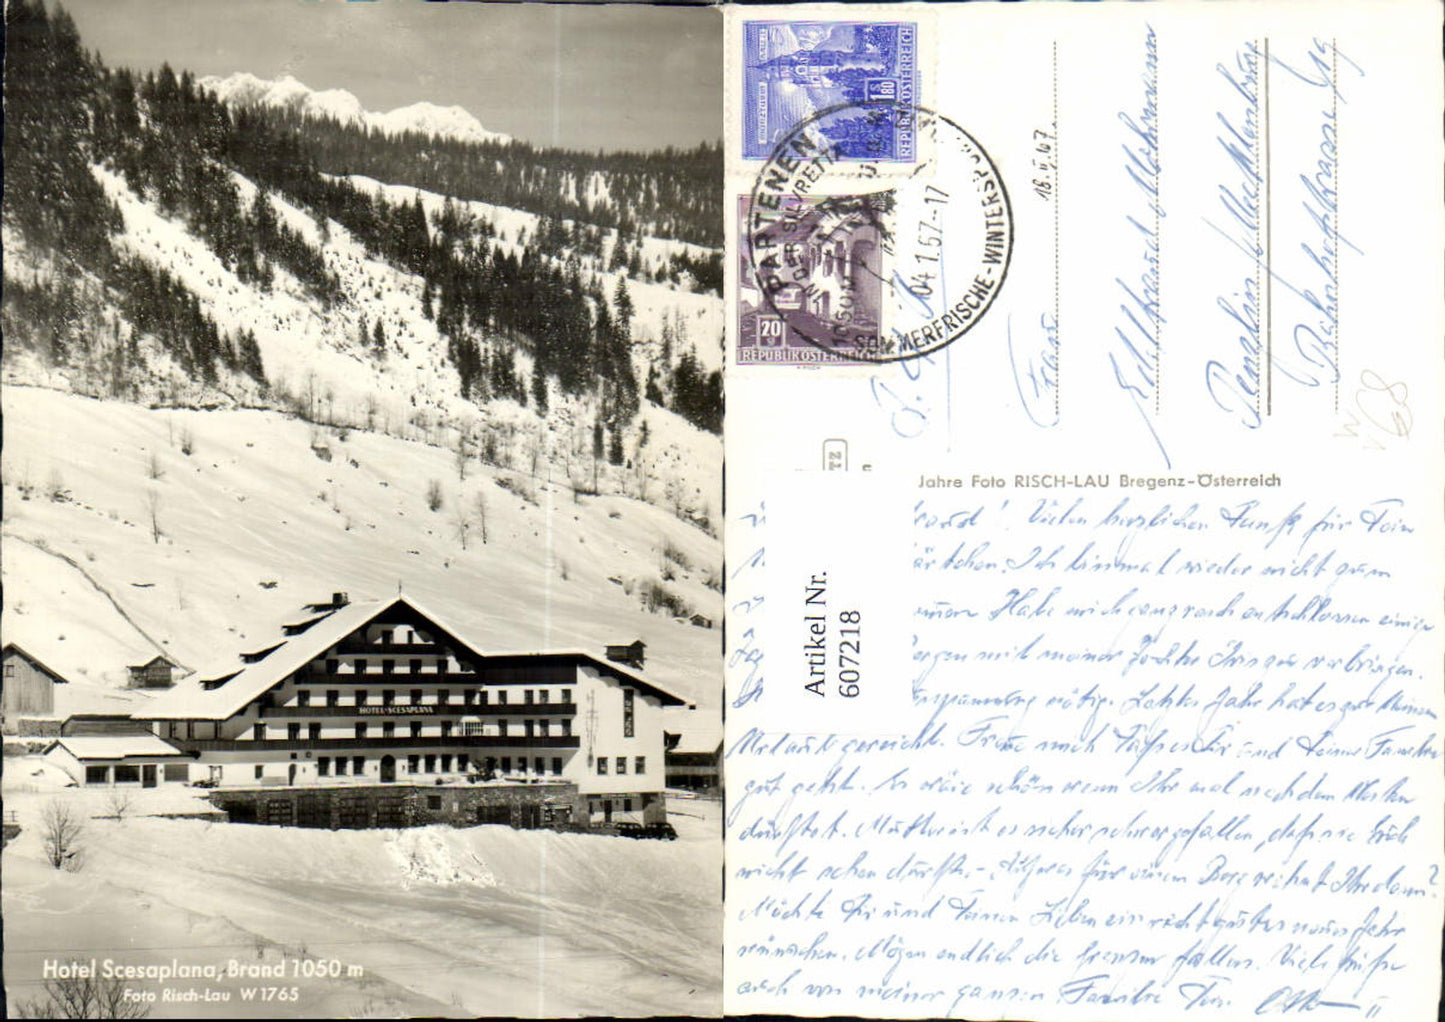 HOTEL-SCESAPLANA
Hotel Scesaplana, Brand 1050 m
Foto Risch-Lau W 1765
REPUBLIK ÖSTERREICH
S 1.80
20 g
REPUBLIK ÖSTERREICH
PARTENEN
AN DER SILVRETTA
1050m
04.1.67-17
SOMMERFRISCHE-WINTERSPO
18.5.67
Frau
Edeltraud Möhrmann
Penzlin/Mecklenburg
Bahnhofstrasse
W 68
TZ
Jahre Foto RISCH-LAU Bregenz-Österreich
Artikel Nr.
607218
traud! Vielen herzlichen Dank für Dein
ärtchen. Ich bin mal wieder nicht zum
Habe mich ganz rasch entschlossen einige
mit meiner Tochter Iris zu verbringen.
nötig. Letztes Jahr hat es zur kleinen
Urlaub gereicht. Freue mich daß es Dir und Deiner Familie
gut geht. Es wäre schön wenn Ihr mal nach dem Westen
dürftet. Mutter ist es sicher schwer gefallen, daß sie Euch
nicht sehen durfte. - für einen Berg Ihr denn?
Möchte Dir und Deinen Lieben ein recht gutes neues Jahr
wünschen. Mögen endlich die Grenzen fallen. Viele Grüße
auch von meiner ganzen Familie Dein